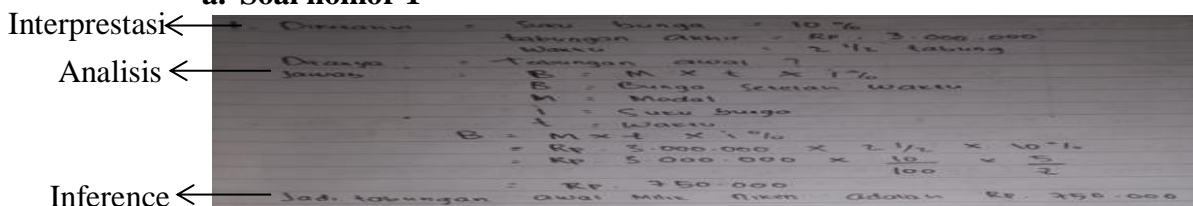 a. Soal nomor 1
Interprestasi
Analisis
Inference
Diketahui = Suku bunga = 10 %
tabungan akhir = Rp. 3.000.000
Waktu = 2 1/2 tabung
Ditanya = Tabungan awal ?
Jawab = B = M x t x i %
B = Bunga setelah waktu
M = Modal
i = Suku bunga
t = Waktu
B = M x t x i %
= Rp. 3.000.000 x 2 1/2 x 10 %
= Rp 3.000.000 x 10/100 x 5/2
= Rp. 750.000
Jadi tabungan awal milik Niken adalah Rp. 750.000